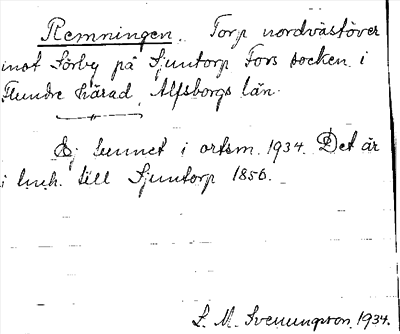 Remningen. Torp nordväst över
mot Sörby på Sjuntorp Fors socken i
Flundre härad, Älfsborgs län.
Ej bunnet i ortsm. 1934. Det är
i huh. till Sjuntorp 1856.
L. M. Svenungsson, 1934.